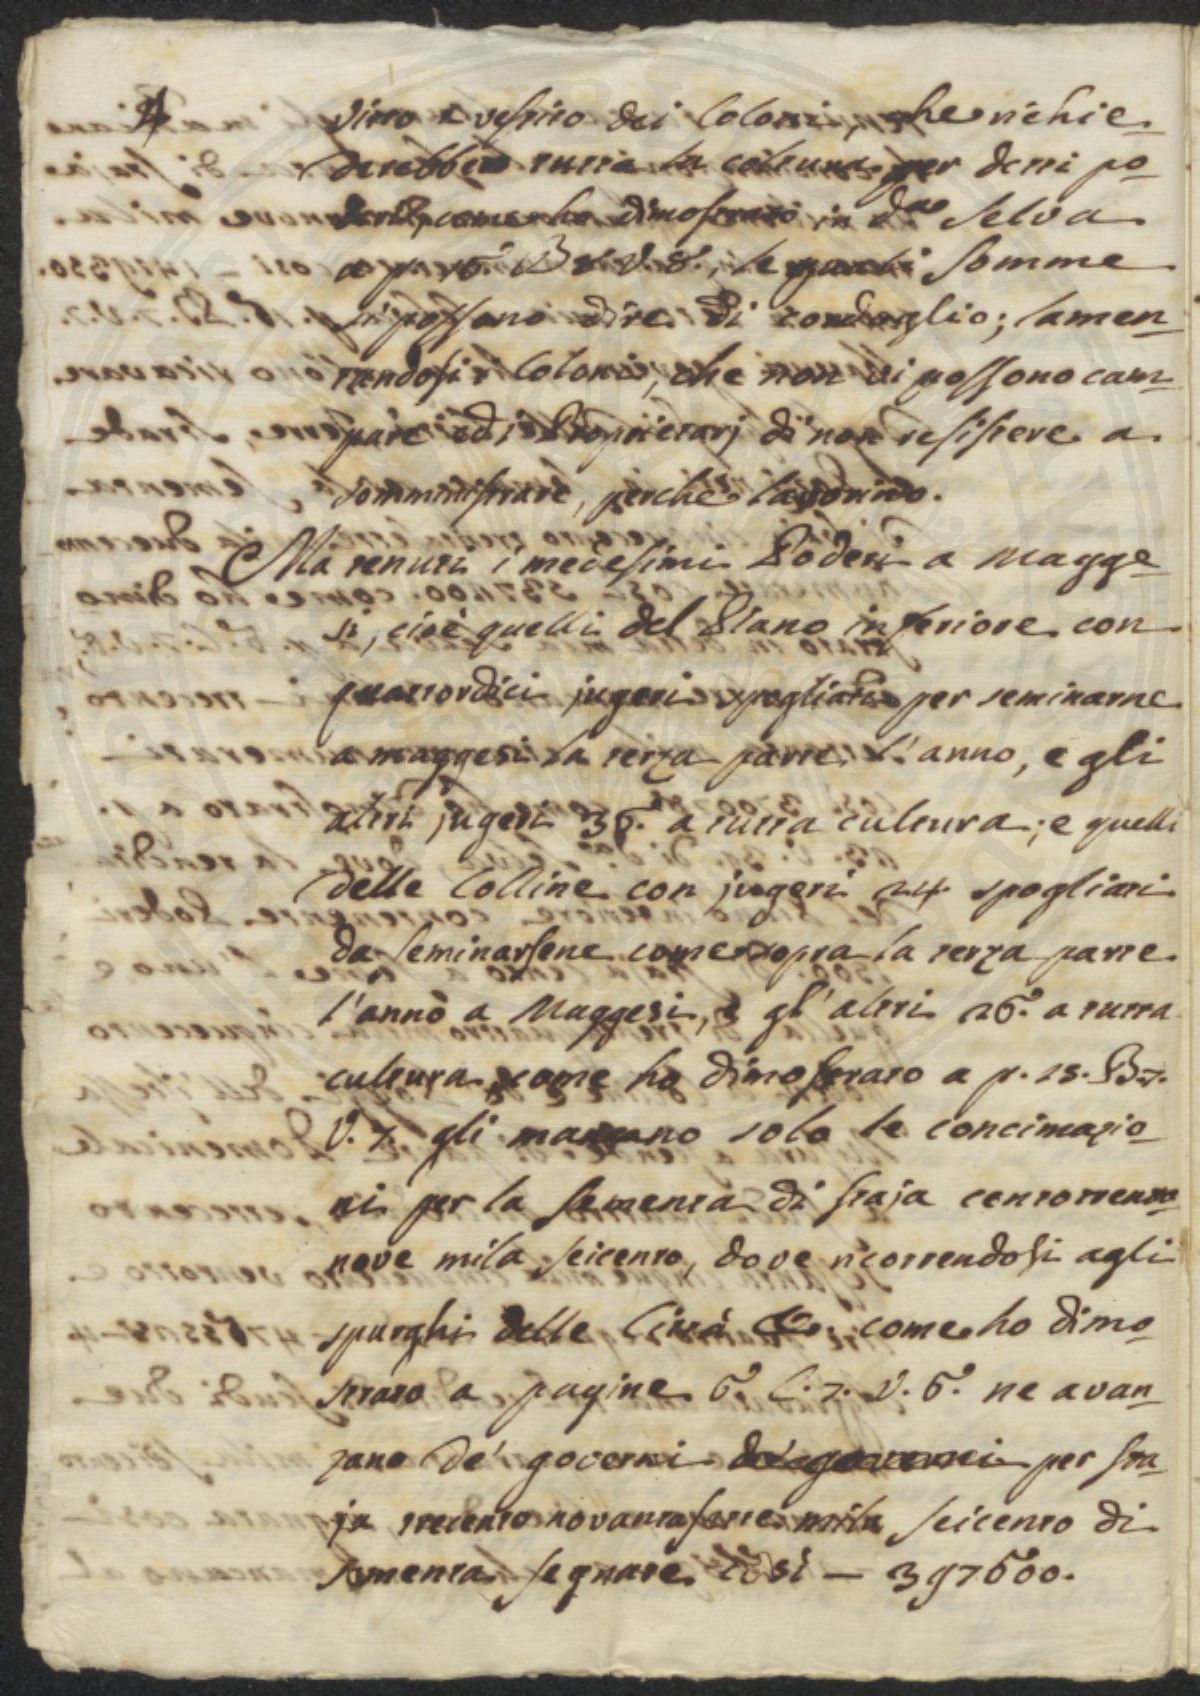 4
vitto e vestito dei Coloni, che richie-
derebbero tutta la coltura per detti po-
deri, come ho dimostrato in d.ª Selva
a p. 6. B. V. 8., le quali somme
si possono dire di conduglio; lamen-
tandosi i Coloni, che non vi possono cam-
pare ed i Proprietarj di non resistere a
somministrare, perche lavorino.
Ma tenuti i medesimi Poderi a Magge-
si, cioè quelli del Piano inferiore con
quattordici jugeri spogliati per seminarne
a maggesi la terza parte l'anno, e gli
altri jugeri 36. a tutta cultura; e quelli
delle Colline con jugeri 24 spogliati
da seminarsene come sopra la terza parte
l'anno a Maggesi, e gl'altri 26. a tutta
cultura, come ho dimostrato a p. 15. B. 7.
V. 7. gli mancano solo le concimazio-
ni per la sementa di staja centotrenta
nove mila seicento, dove ricorrendosi agli
spurghi delle Città &c. come ho dimo-
strato a pagine 6. C. 7. V. 6. ne avan-
zano de' governi per sta-
ja trecento novantasette mila seicento di
sementa segnate così — 397600.